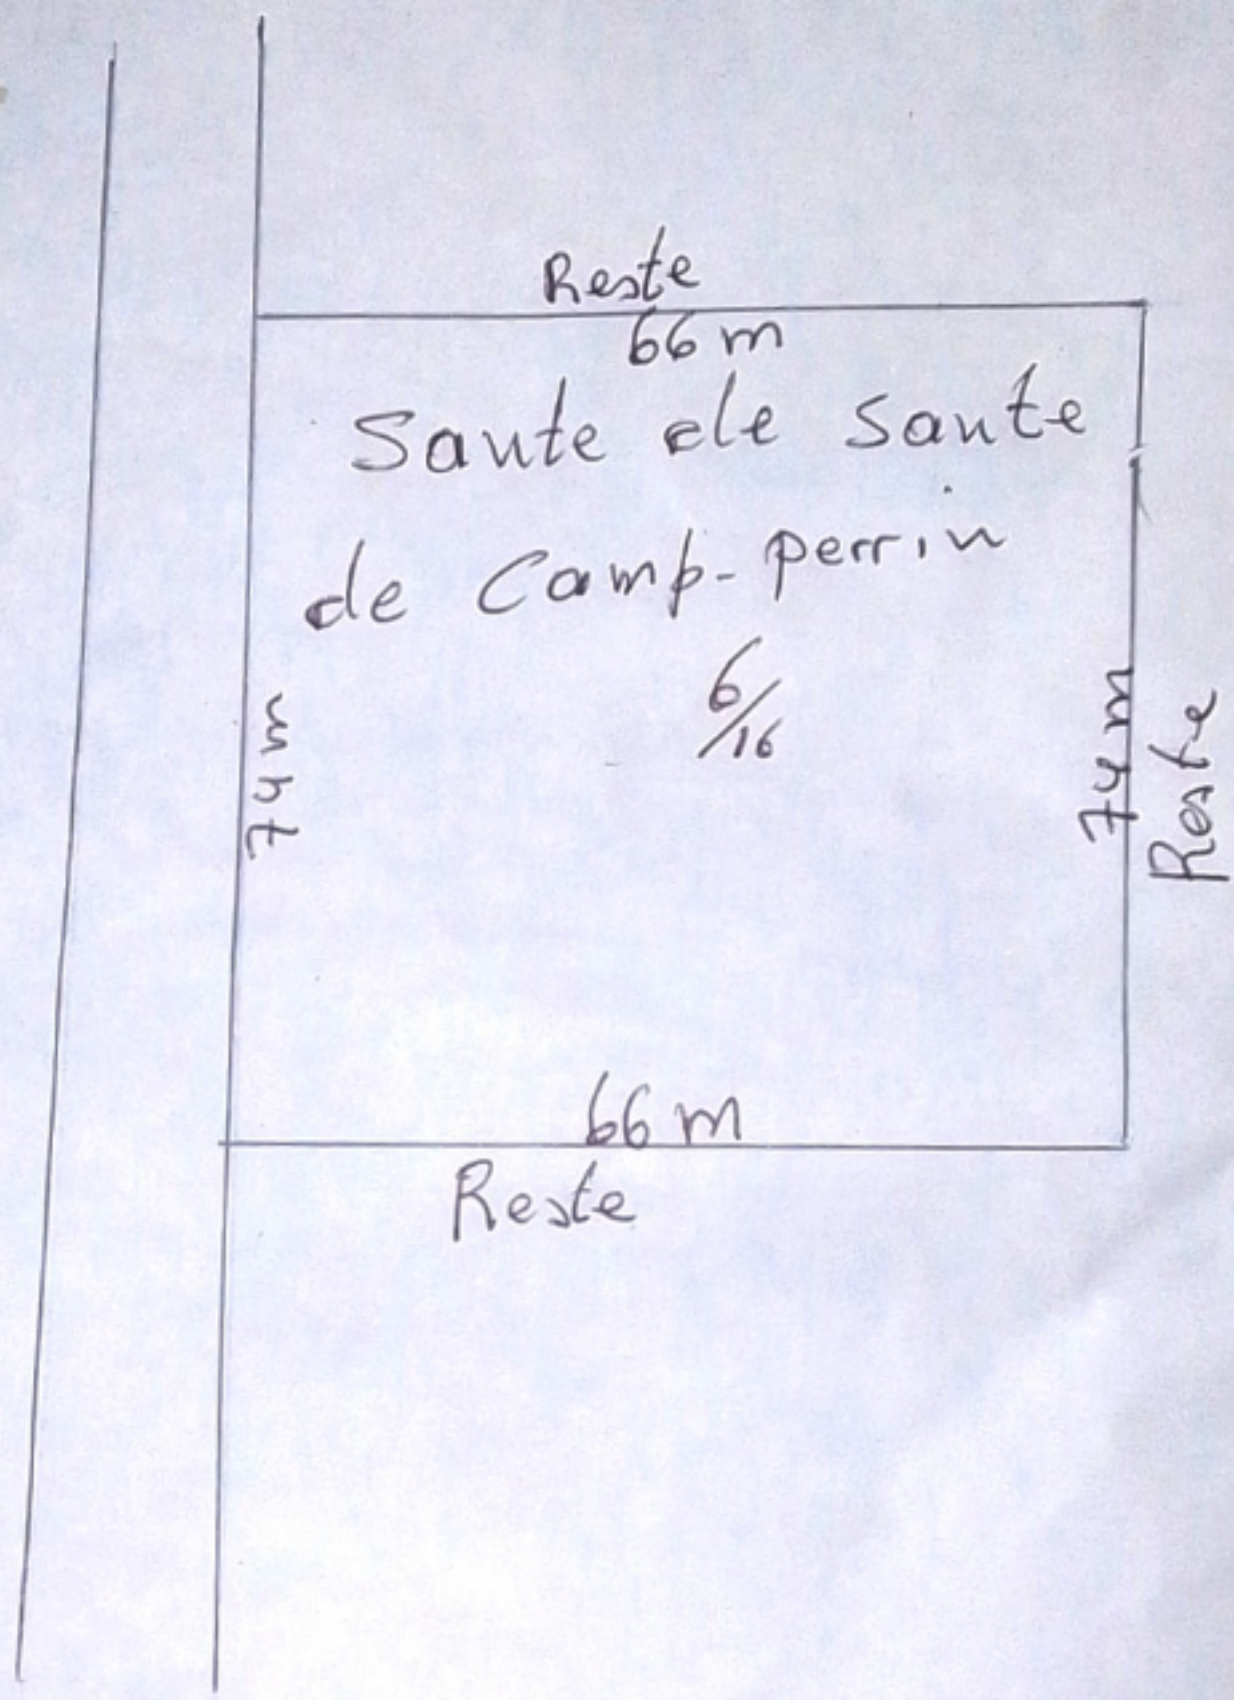 Reste
66 m
Sante de sante
de Camp-perrin
6/16
74 m
74 m
Reste
66 m
Reste